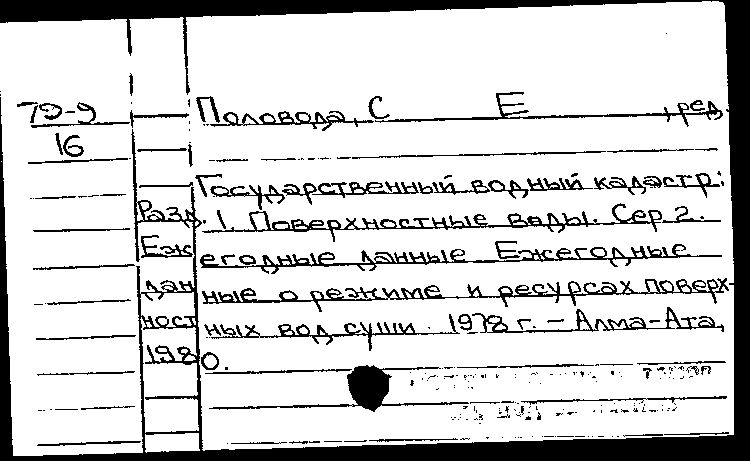 79-9 Половода, С Е , ред.
16
Государственный водный кадастр:
Разд. 1. Поверхностные воды. Сер 2.
Ежегодные данные Ежегодные
данные о режиме и ресурсах поверх-
ностных вод суши 1978 г. - Алма-Ата,
1980.